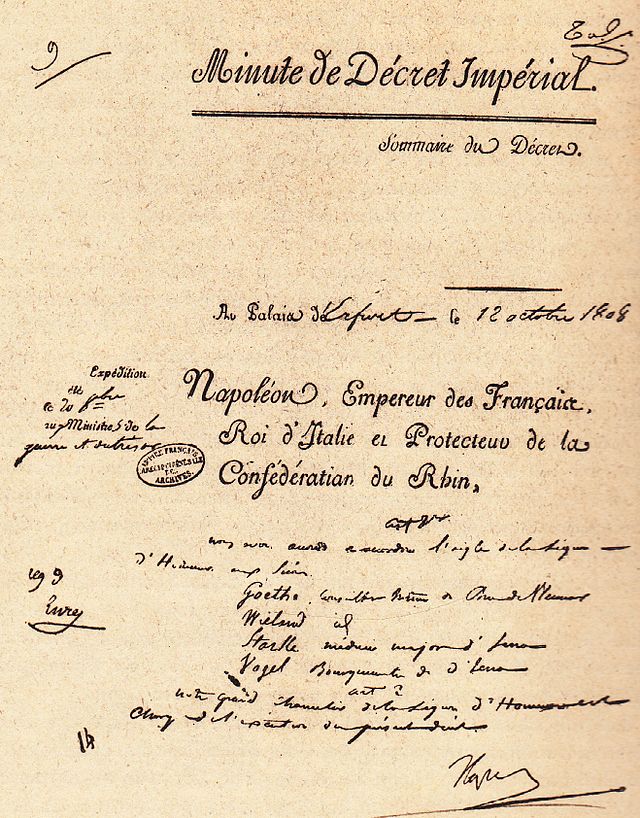 9
Minute de Décret Impérial.
Sommaire du Décret.
Au Palais d'Erfurt le 12 octobre 1808
Expédition
le 20 8bre
aux Ministres de la
guerre et du trésor
Napoléon, Empereur des Français,
Roi d'Italie et Protecteur de la
Confédération du Rhin,
ARCHIVES.
art 1er
nous avons accordé et accordons l'aigle de la Légion
d'Honneur aux Srs
Goethe, de
Wieland id
Starke médecin major d'Iena
Vogel Bourguemestre de d'Iena
art 2
notre grand chancelier de la Légion d'Honneur est
chargé de l'exécution du présent décret.
reg 9
Nap